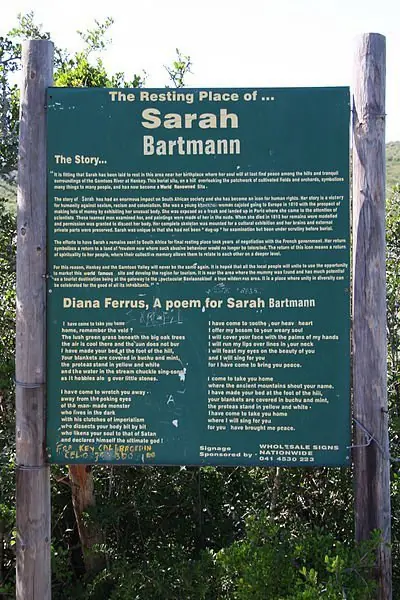 The Resting Place of ...
Sarah
Bartmann
The Story...
It is fitting that Sarah has been laid to rest in this area near her birthplace where her soul will at last find peace among the hills and tranquil
surroundings of the Gamtoos River at Hankey. This burial site, on a hill overlooking the patchwork of cultivated fields and orchards, symbolizes
many things to many people, and has now become a World Renowned Site.
The story of Sarah has had an enormous impact on South African society and she has become an icon for human rights. Her story is a victory
for humanity against sexism, racism and colonialism. She was a young women enjoyed going to Europe in 1810 with the prospect of
making lots of money by exhibiting her unusual body. She was exposed as a freak and landed up in Paris where she came to the attention of
scientists. These learned men examined her, and paintings were made of her in the nude. When she died in 1815 her remains were modelled
and permission was granted to dissect her body. Her complete skeleton was mounted for a cultural exhibition and her brains and external
private parts were preserved. Sarah was unique in that she had not been "dug-up" for examination but been under scrutiny before burial.
The efforts to have Sarah's remains sent to South Africa for final resting place took years of negotiation with the French government. Her return
symbolises a return to a land of freedom now where such abusive behaviour would no longer be tolerated. The return of this icon means a return
of spirituality to her people, where their collective memory allows them to relate to each other on a deeper level.
For this reason, Hankey and the Gamtoos Valley will never be the same again. It is hoped that all the local people will unite to use the opportunity
to market this world famous site and develop the region for tourism. It is near the area where the mummy was found and has much potential
as a tourist destination being at the gateway to the spectacular Baviaanskloof a true wilderness area. It is a place where unity in diversity can
be celebrated for the good of all its inhabitants."
Diana Ferrus, A poem for Sarah Bartmann
I have come to take you home
home, remember the veld ?
The lush green grass beneath the big oak trees
the air is cool there and the sun does not bur
I have made your bed at the foot of the hill,
your blankets are covered in buchu and mint,
the proteas stand in yellow and white
and the water in the stream chuckle sing-songs
as it hobbles along over little stones.
I have come to wretch you away -
away from the poking eyes
of the man-made monster
who lives in the dark
with his clutches of imperialism
who dissects your body bit by bit
who likens your soul to that of Satan
and declares himself the ultimate god !
I have come to soothe your heavy heart
I offer my bosom to your weary soul
I will cover your face with the palms of my hands
I will run my lips over lines in your neck
I will feast my eyes on the beauty of you
and I will sing for you
for I have come to bring you peace.
I come to take you home
where the ancient mountains shout your name.
I have made your bed at the foot of the hill,
your blankets are covered in buchu and mint,
the proteas stand in yellow and white
I have come to take you home
where I will sing for you
for you have brought me peace.
FOR KEY
Signage
Sponsored by -
WHOLESALE SIGNS
NATIONWIDE
041 4530 223